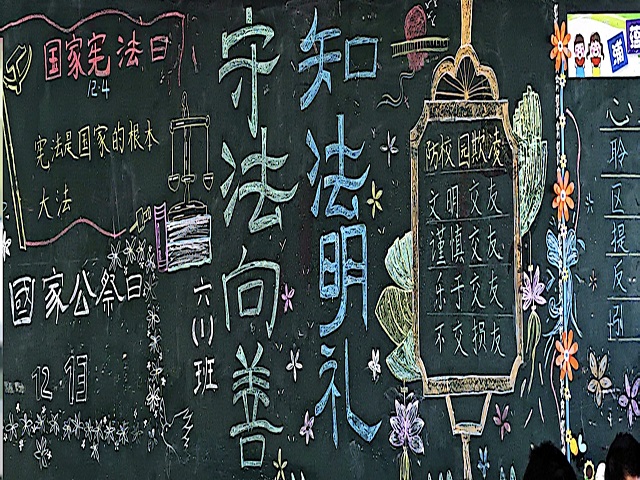 国家宪法日
12.4
宪法是国家的根本
大法
国家公祭日
12月
六(1)班
知法明礼
守法向善
防校园欺凌
文明交友
谨慎交友
乐于交友
不交损友
心
聆
区
提
反